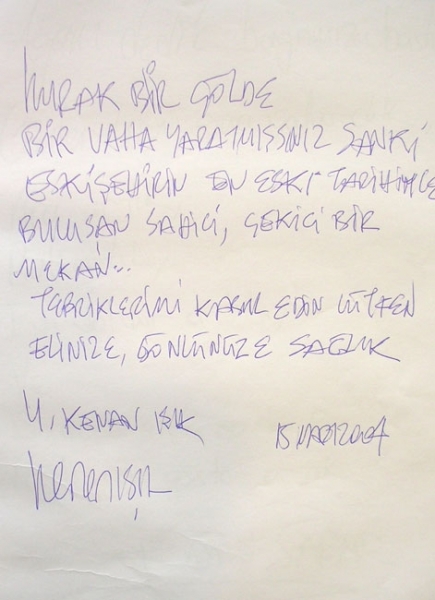 KURAK BİR ÇÖLDE
BİR VAHA YARATMIŞSINIZ SANKİ
ESKİŞEHİRİN EN ESKİ TARİHİYLE
BULUŞAN SAHİCİ, ÇEKİCİ BİR
MEKAN...
TEBRİKLERİMİ KABUL EDİN LÜTFEN
ELİNİZE, GÖNLÜNÜZE SAĞLIK
KENAN IŞIK
15 2004
Kenan IŞIK